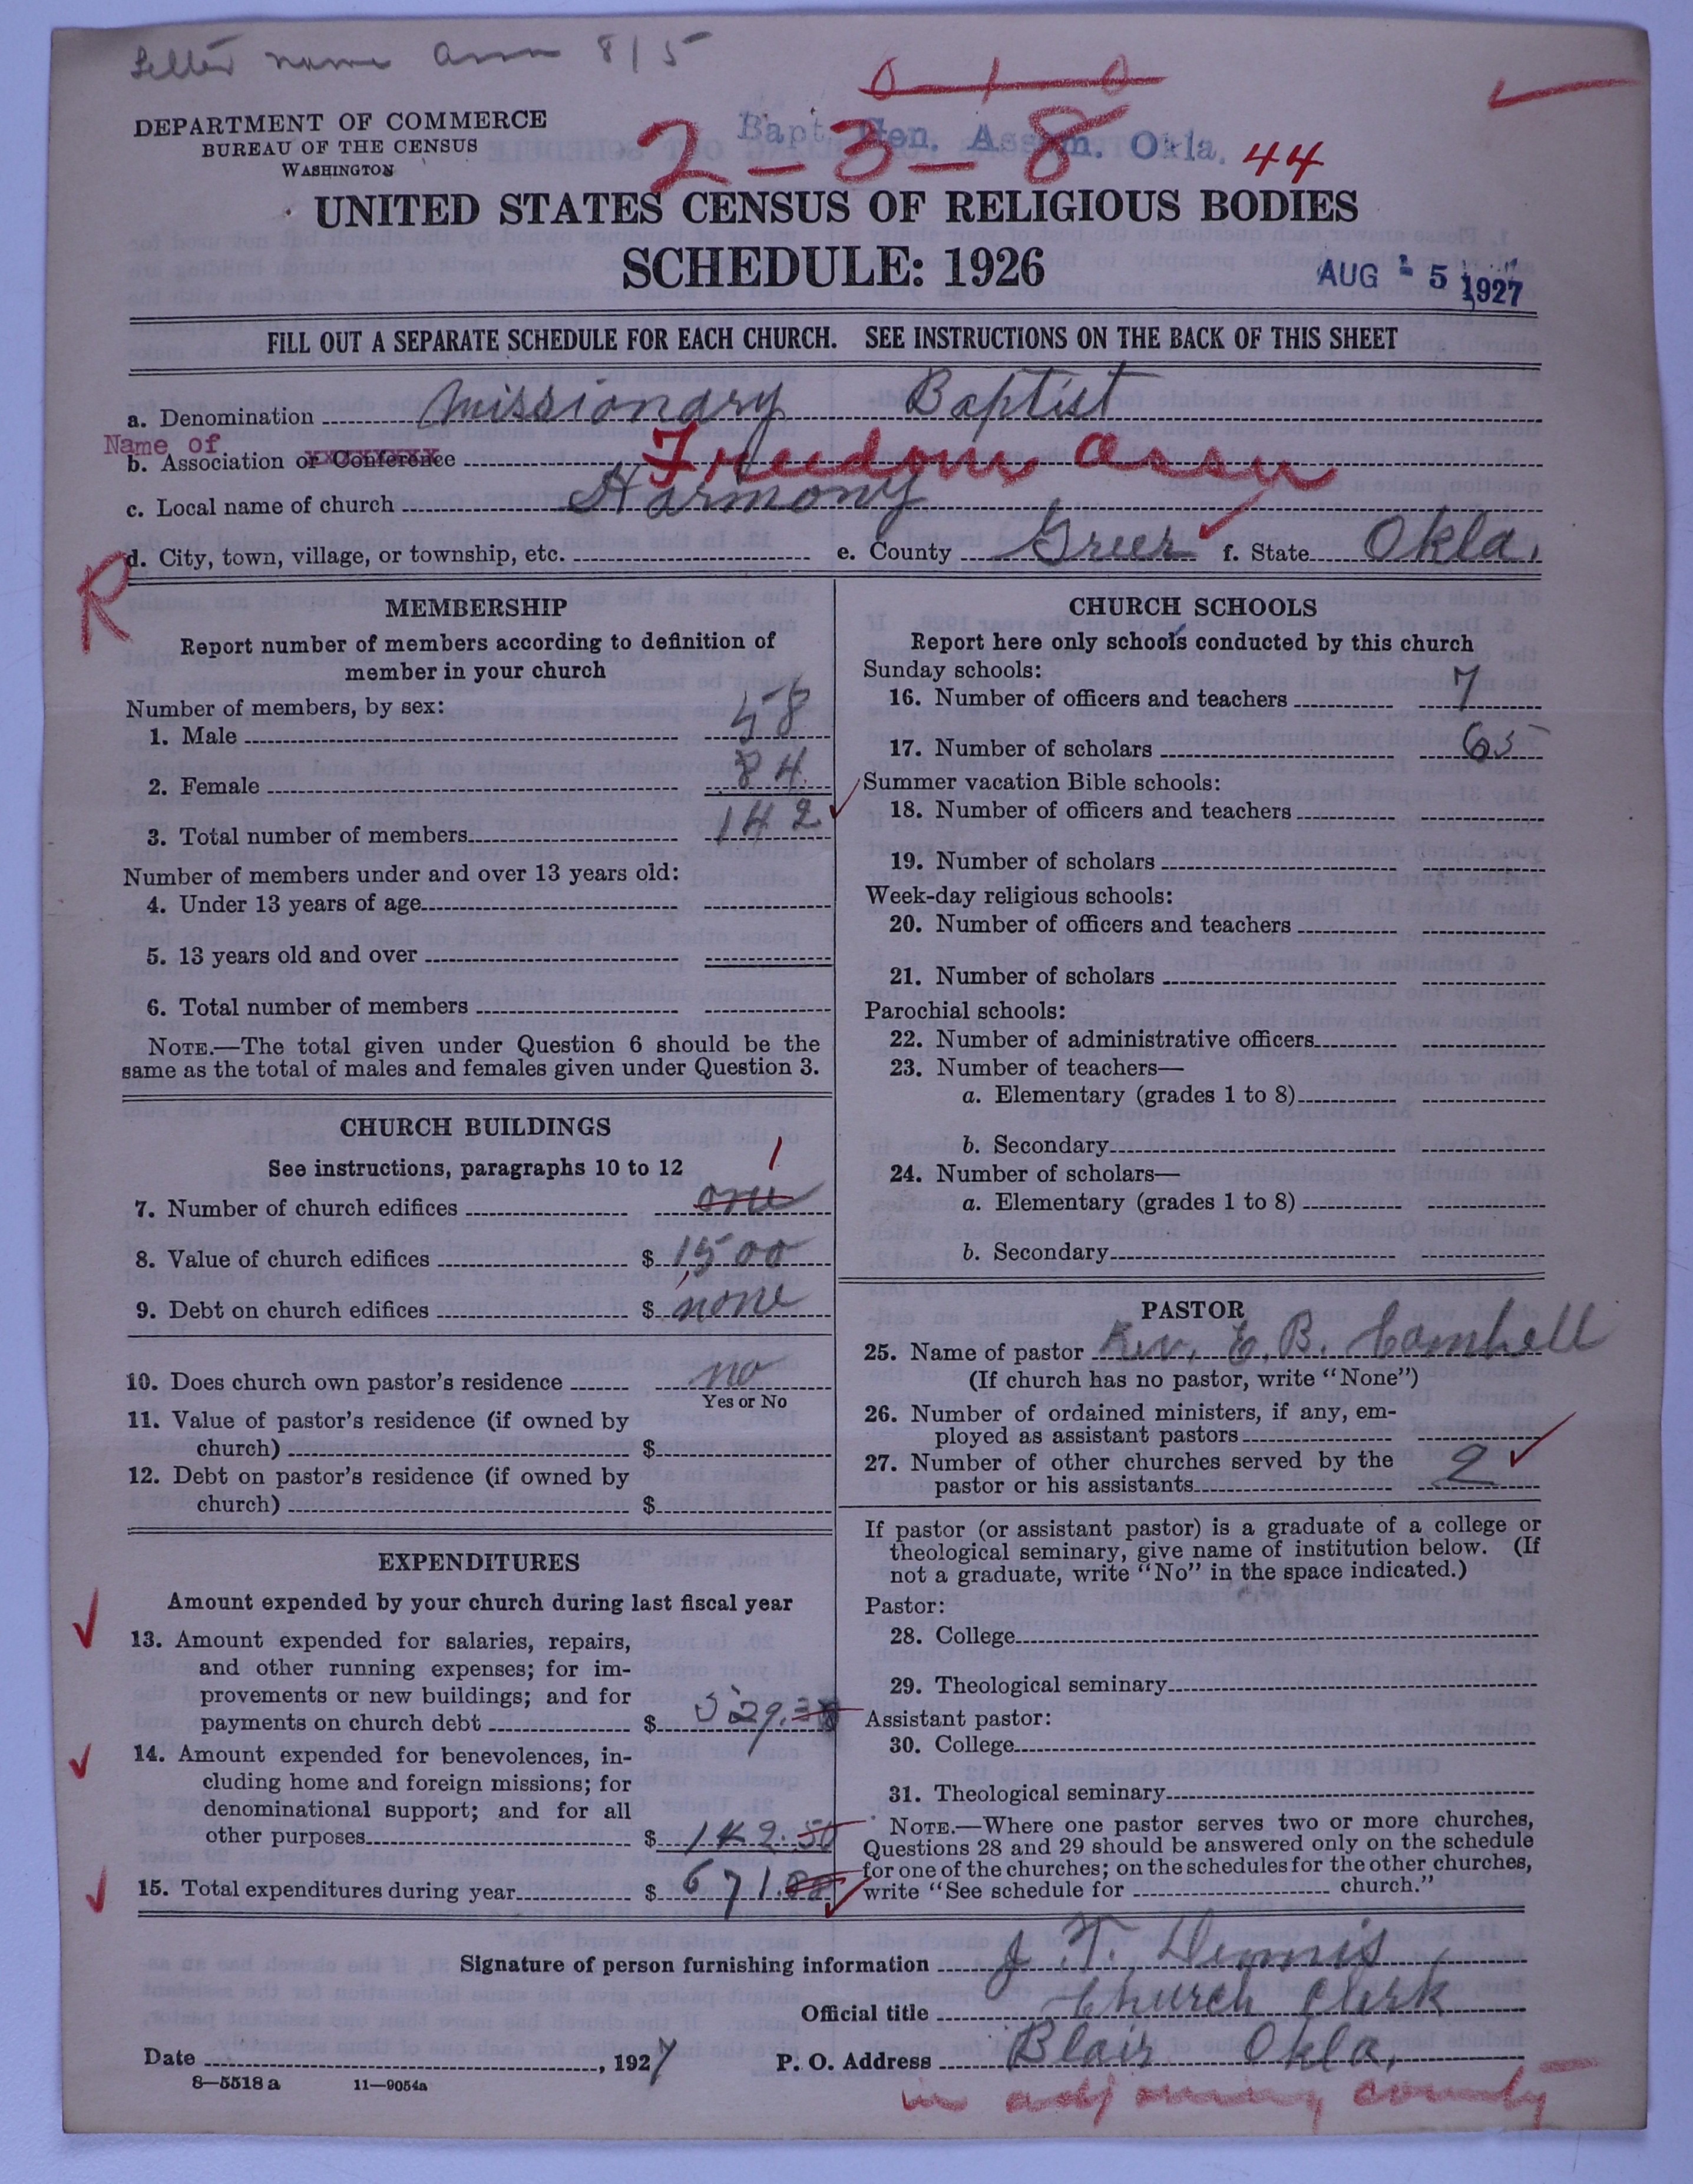 Letter name assn 8/5
DEPARTMENT OF COMMERCE
BUREAU OF THE CENSUS
WASHINGTON
Bapt. Gen. Assem. Okla.
2-3-8
44
UNITED STATES CENSUS OF RELIGIOUS BODIES
SCHEDULE: 1926
AUG 5 1927
FILL OUT A SEPARATE SCHEDULE FOR EACH CHURCH. SEE INSTRUCTIONS ON THE BACK OF THIS SHEET
a. Denomination Missionary Baptist
Name of
b. Association or Conference Freedom Assn
c. Local name of church Harmony
d. City, town, village, or township, etc. e. County Greer f. State Okla.
R
MEMBERSHIP
Report number of members according to definition of
member in your church
Number of members, by sex:
1. Male 58
2. Female 84
3. Total number of members 142
Number of members under and over 13 years old:
4. Under 13 years of age
5. 13 years old and over
6. Total number of members
NOTE.—The total given under Question 6 should be the
same as the total of males and females given under Question 3.
CHURCH BUILDINGS
See instructions, paragraphs 10 to 12
1
7. Number of church edifices one
8. Value of church edifices $ 1,500
9. Debt on church edifices $ none
10. Does church own pastor's residence no
Yes or No
11. Value of pastor's residence (if owned by
church) $
12. Debt on pastor's residence (if owned by
church) $
EXPENDITURES
Amount expended by your church during last fiscal year
13. Amount expended for salaries, repairs,
and other running expenses; for im-
provements or new buildings; and for
payments on church debt $ 529.
14. Amount expended for benevolences, in-
cluding home and foreign missions; for
denominational support; and for all
other purposes $ 142.50
15. Total expenditures during year $ 671.
CHURCH SCHOOLS
Report here only schools conducted by this church
Sunday schools:
16. Number of officers and teachers 7
17. Number of scholars 65
Summer vacation Bible schools:
18. Number of officers and teachers
19. Number of scholars
Week-day religious schools:
20. Number of officers and teachers
21. Number of scholars
Parochial schools:
22. Number of administrative officers
23. Number of teachers—
a. Elementary (grades 1 to 8)
b. Secondary
24. Number of scholars—
a. Elementary (grades 1 to 8)
b. Secondary
PASTOR
25. Name of pastor Rev. E. B. Cambell
(If church has no pastor, write "None")
26. Number of ordained ministers, if any, em-
ployed as assistant pastors
27. Number of other churches served by the
pastor or his assistants 2
If pastor (or assistant pastor) is a graduate of a college or
theological seminary, give name of institution below. (If
not a graduate, write "No" in the space indicated.)
Pastor:
28. College
29. Theological seminary
Assistant pastor:
30. College
31. Theological seminary
NOTE.—Where one pastor serves two or more churches,
Questions 28 and 29 should be answered only on the schedule
for one of the churches; on the schedules for the other churches,
write "See schedule for church."
Signature of person furnishing information J. T. Dennis
Official title Church Clerk
Date , 1927 P. O. Address Blair Okla.
8—5518 a 11—9054a
in adjoining county